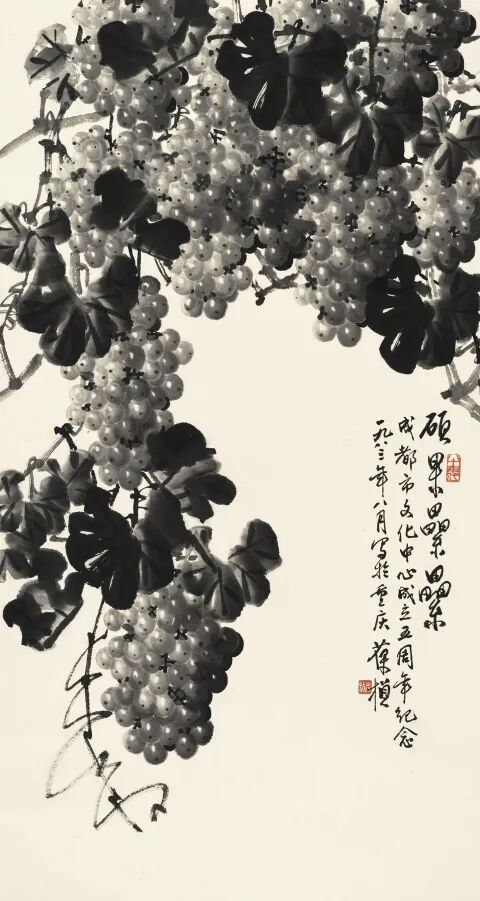 硕果累累
成都市文化中心成立五周年纪念
一九八三年八月写于重庆 葆桢